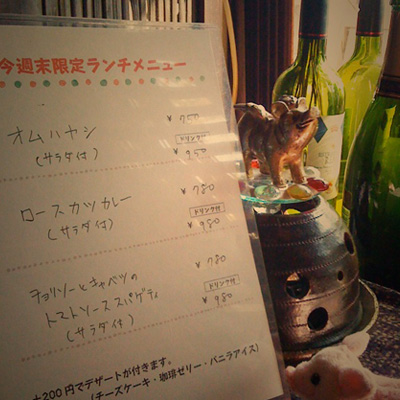 今週末限定ランチメニュー
オムハヤシ ¥750
(サラダ付) ドリンク付
¥950
ロースカツカレー ¥780
(サラダ付) ドリンク付
¥980
チョリソーとキャベツの ¥780
トマトソーススパゲティ ドリンク付
(サラダ付) ¥980
+200円でデザートが付きます。
(チーズケーキ・珈琲ゼリー・バニラアイス)